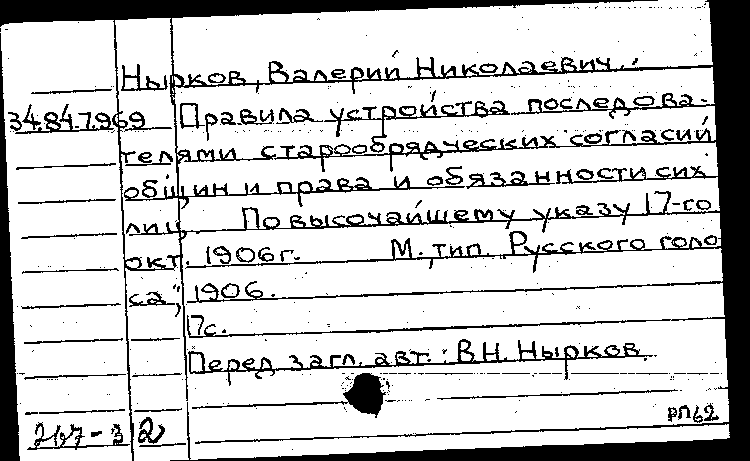 Нырков, Валерий Николаевич.
34.84.7.969 Правила устройства последова-
телями старообрядческих согласий
общин и права и обязанности сих
лиц. По высочайшему указу 17-го
окт. 1906г. М., тип. "Русского голо
са", 1906.
7с.
Перед загл. авт.: В.Н. Нырков.
267-3 2
РП62